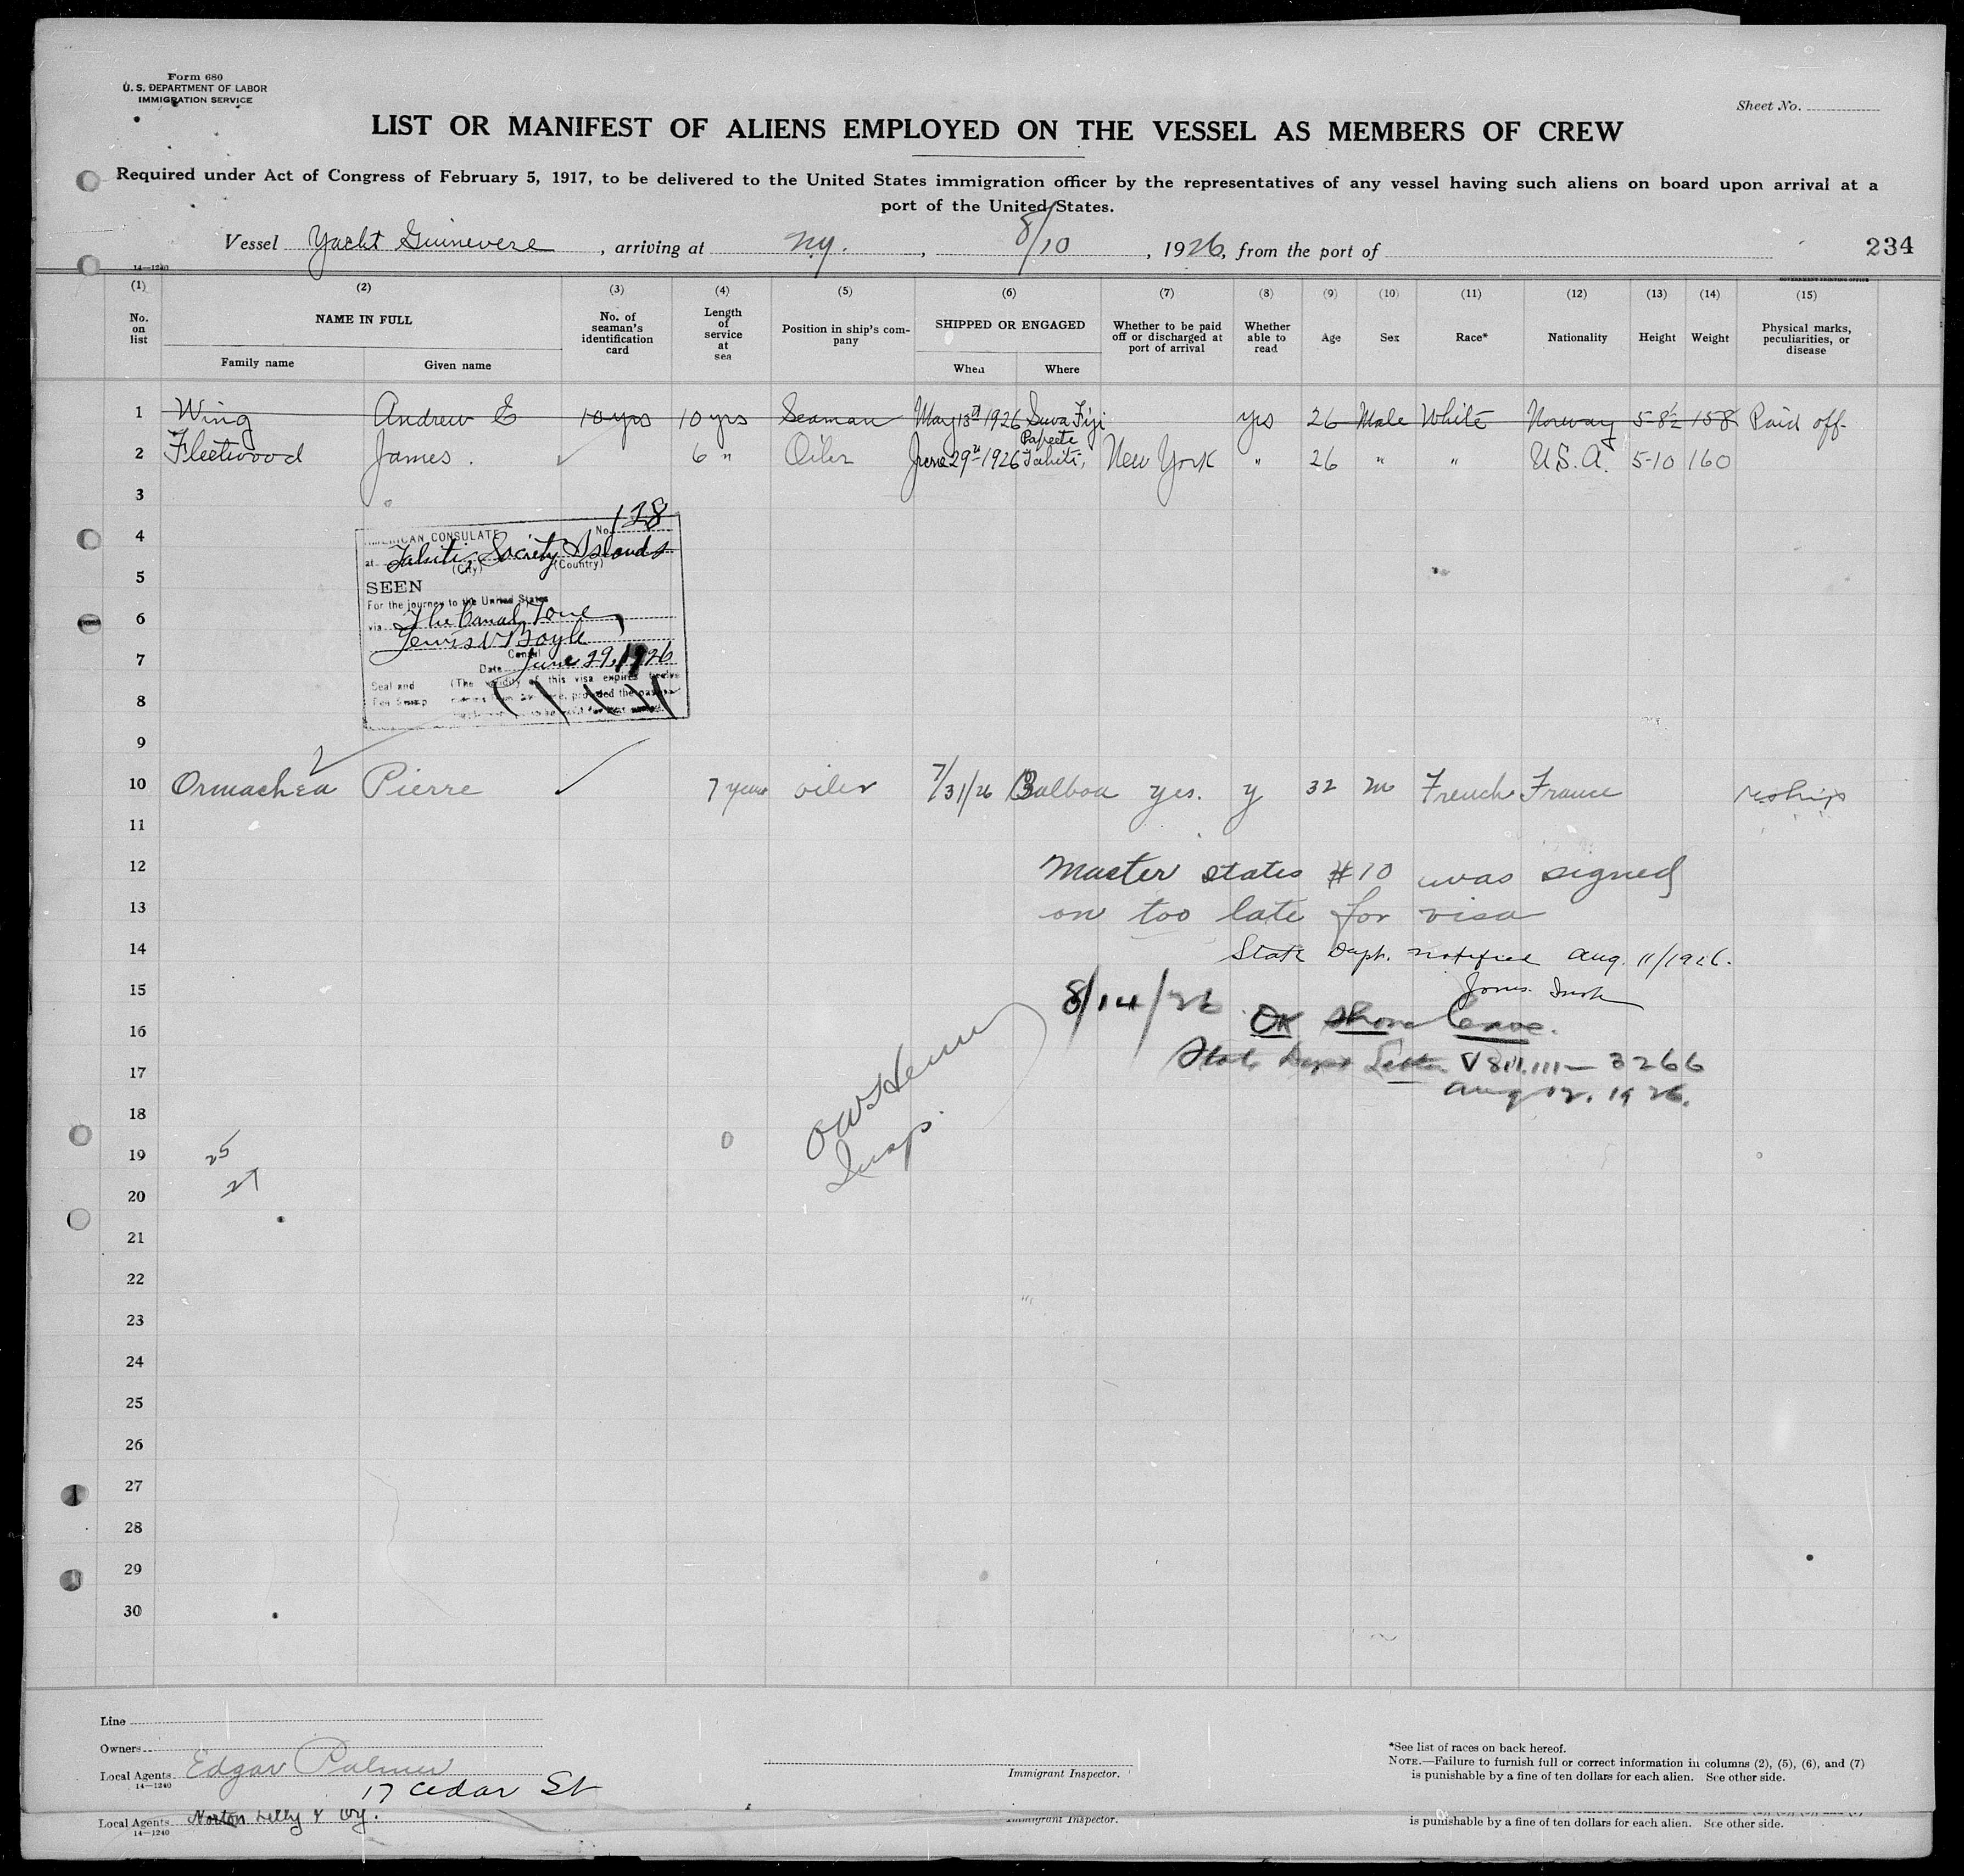 Form 680
U. S. DEPARTMENT OF LABOR
IMMIGRATION SERVICE
Sheet No.
LIST OR MANIFEST OF ALIENS EMPLOYED ON THE VESSEL AS MEMBERS OF CREW
Required under Act of Congress of February 5, 1917, to be delivered to the United States immigration officer by the representatives of any vessel having such aliens on board upon arrival at a
port of the United States.
Vessel Yacht Guinevere , arriving at N.Y. , 8/10 , 1926, from the port of
234
14—1240
GOVERNMENT PRINTING OFFICE
(1) (2) (3) (4) (5) (6) (7) (8) (9) (10) (11) (12) (13) (14) (15)
No. on list NAME IN FULL Family name Given name No. of seaman's identification card Length of service at sea Position in ship's company SHIPPED OR ENGAGED When Where Whether to be paid off or discharged at port of arrival Whether able to read Age Sex Race* Nationality Height Weight Physical marks, peculiarities, or disease
1 Wing Andrew E 10 yrs 10 yrs Seaman May 13th 1926 Suva Fiji yes 26 Male White Norway 5-8½ 158 Paid off-
2 Fleetwood James. ✓ 6 " Oiler June 29th 1926 Papeete Tahiti, New York " 26 " " U.S.A. 5-10 160
3
4
5
6
7
8
9
AMERICAN CONSULATE No. 128
at Tahiti, Society Islands
(City) (Country)
SEEN
For the journey to the United States
via The Canal Zone
Lewis V Boyle
Consul
Date June 29, 1926
Seal and
Fee Stamp
(The validity of this visa expires twelve
10 Ormachea Pierre ✓ 7 years oiler 7/31/26 Balboa yes. y 32 m French France reship
11
12 Master states #10 was signed
13 on too late for visa
14 State Dept. notified Aug. 11/1926.
15 Jones. Insp
8/14/26 OK Shore leave.
16
17 State Dept Letter V811.111— 3266
Aug 12. 1926.
18
OWS Henry
Insp.
19 25
20 27
21
22
23
24
25
26
27
28
29
30
Line
Owners
Local Agents Edgar Palmer
14—1240
17 Cedar St
Immigrant Inspector.
*See list of races on back hereof.
NOTE.—Failure to furnish full or correct information in columns (2), (5), (6), and (7)
is punishable by a fine of ten dollars for each alien. See other side.
Local Agents Norton Lilly & Coy.
14—1240
Immigrant Inspector.
is punishable by a fine of ten dollars for each alien. See other side.